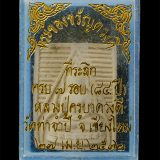 พระของขวัญดวงดี
ที่ระลึก
ครบ ๗ รอบ (๘๔ ปี)
หลวงปู่ครูบาดวงดี
วัดท่าจำปี จ.เชียงใหม่